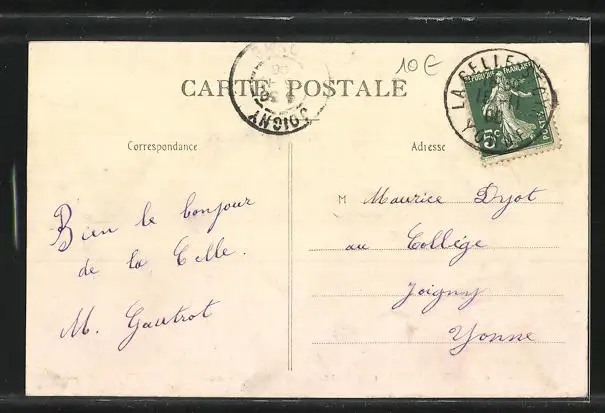 10€
CARTE POSTALE
JOIGNY
LA CELLE
REPUBLIQUE FRANÇAISE
5c
POSTES
Correspondance
Adresse
Bien le bonjour
de la Celle.
M. Gautrot
M Maurice Dyot
au Collége
Joigny
Yonne